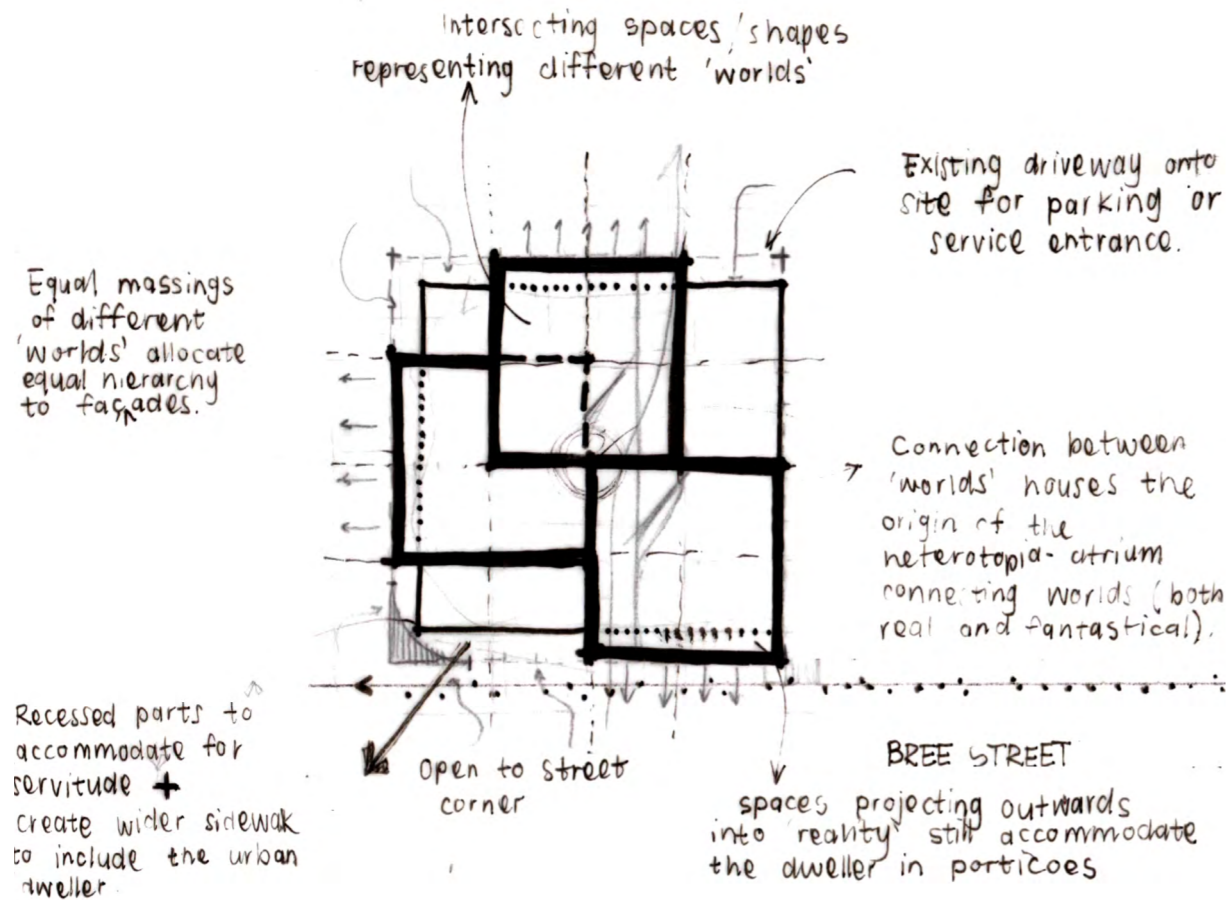 Intersecting spaces/shapes
representing different 'worlds'
Existing driveway onto
site for parking or
service entrance.
Equal massings
of different
'worlds' allocate
equal hierarchy
to façades.
Connection between
'worlds' houses the
origin of the
heterotopia - atrium
connecting worlds (both
real and fantastical).
Recessed parts to
accommodate for
servitude +
create wider sidewak
to include the urban
dweller.
open to street
corner
BREE STREET
spaces projecting outwards
into 'reality' still accommodate
the dweller in porticoes